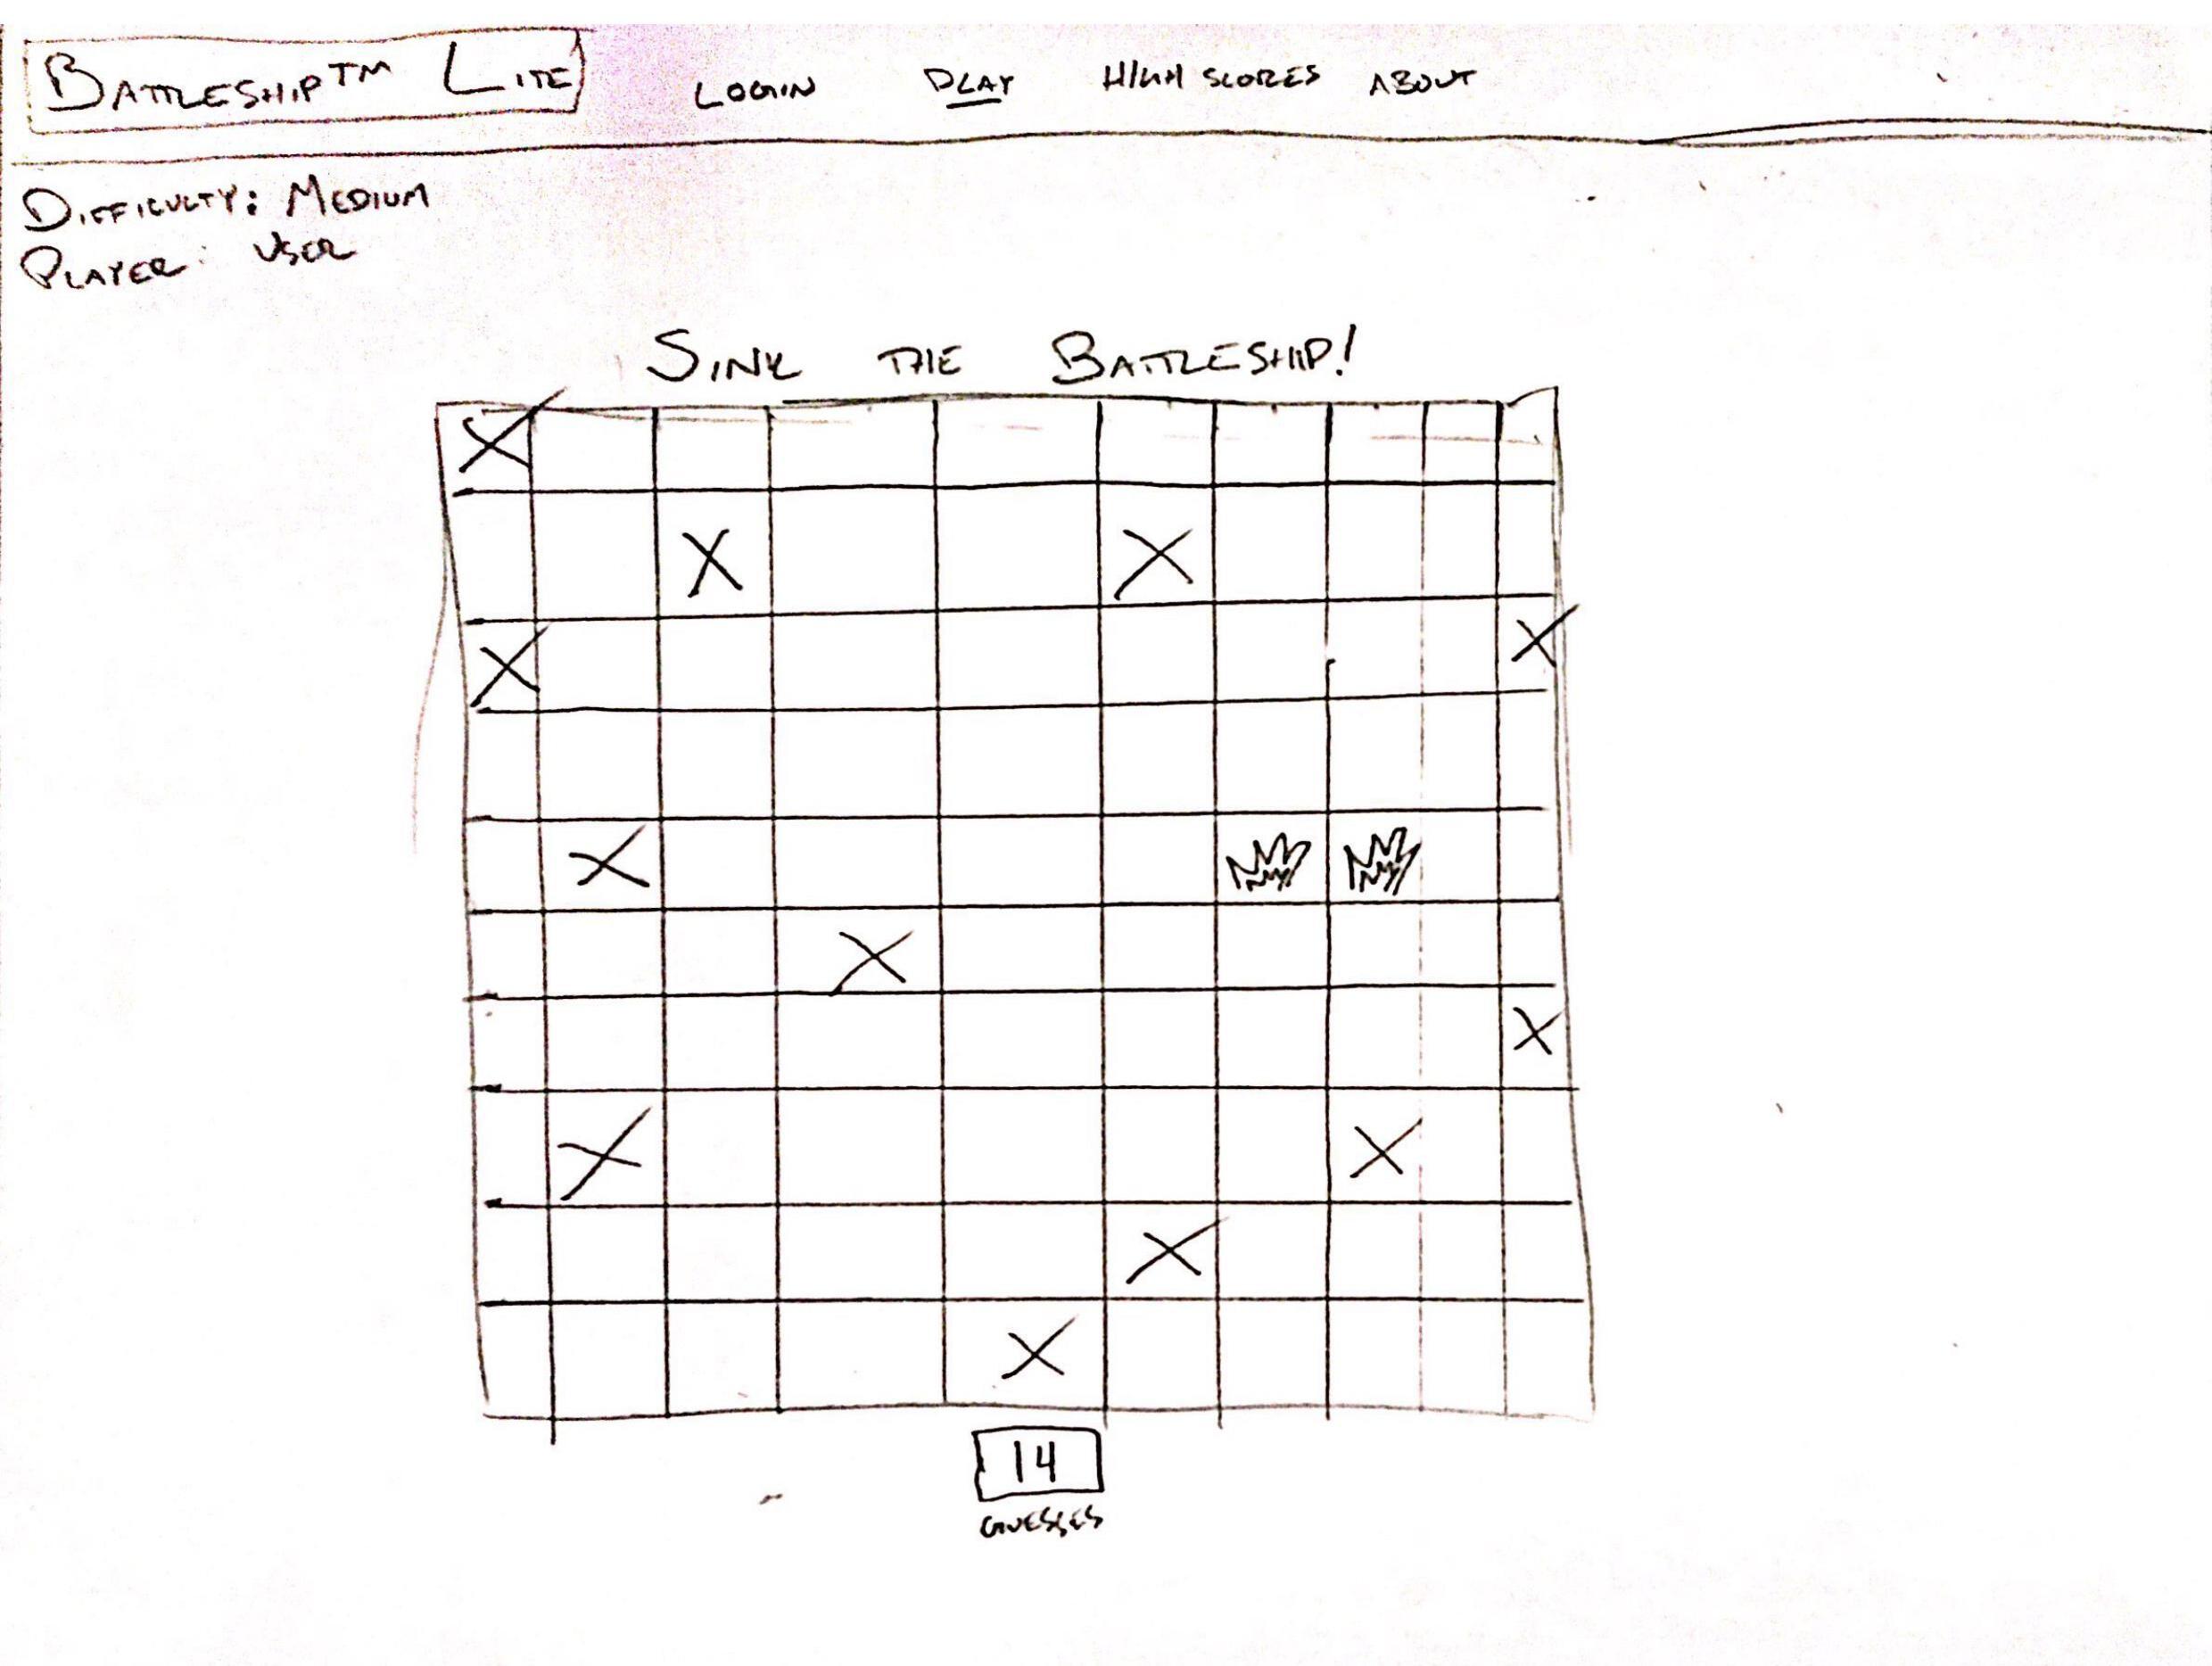 BATTLESHIP™ LITE
LOGIN PLAY HIGH SCORES ABOUT
DIFFICULTY: MEDIUM
PLAYER: USER
SINK THE BATTLESHIP!
14
GUESSES